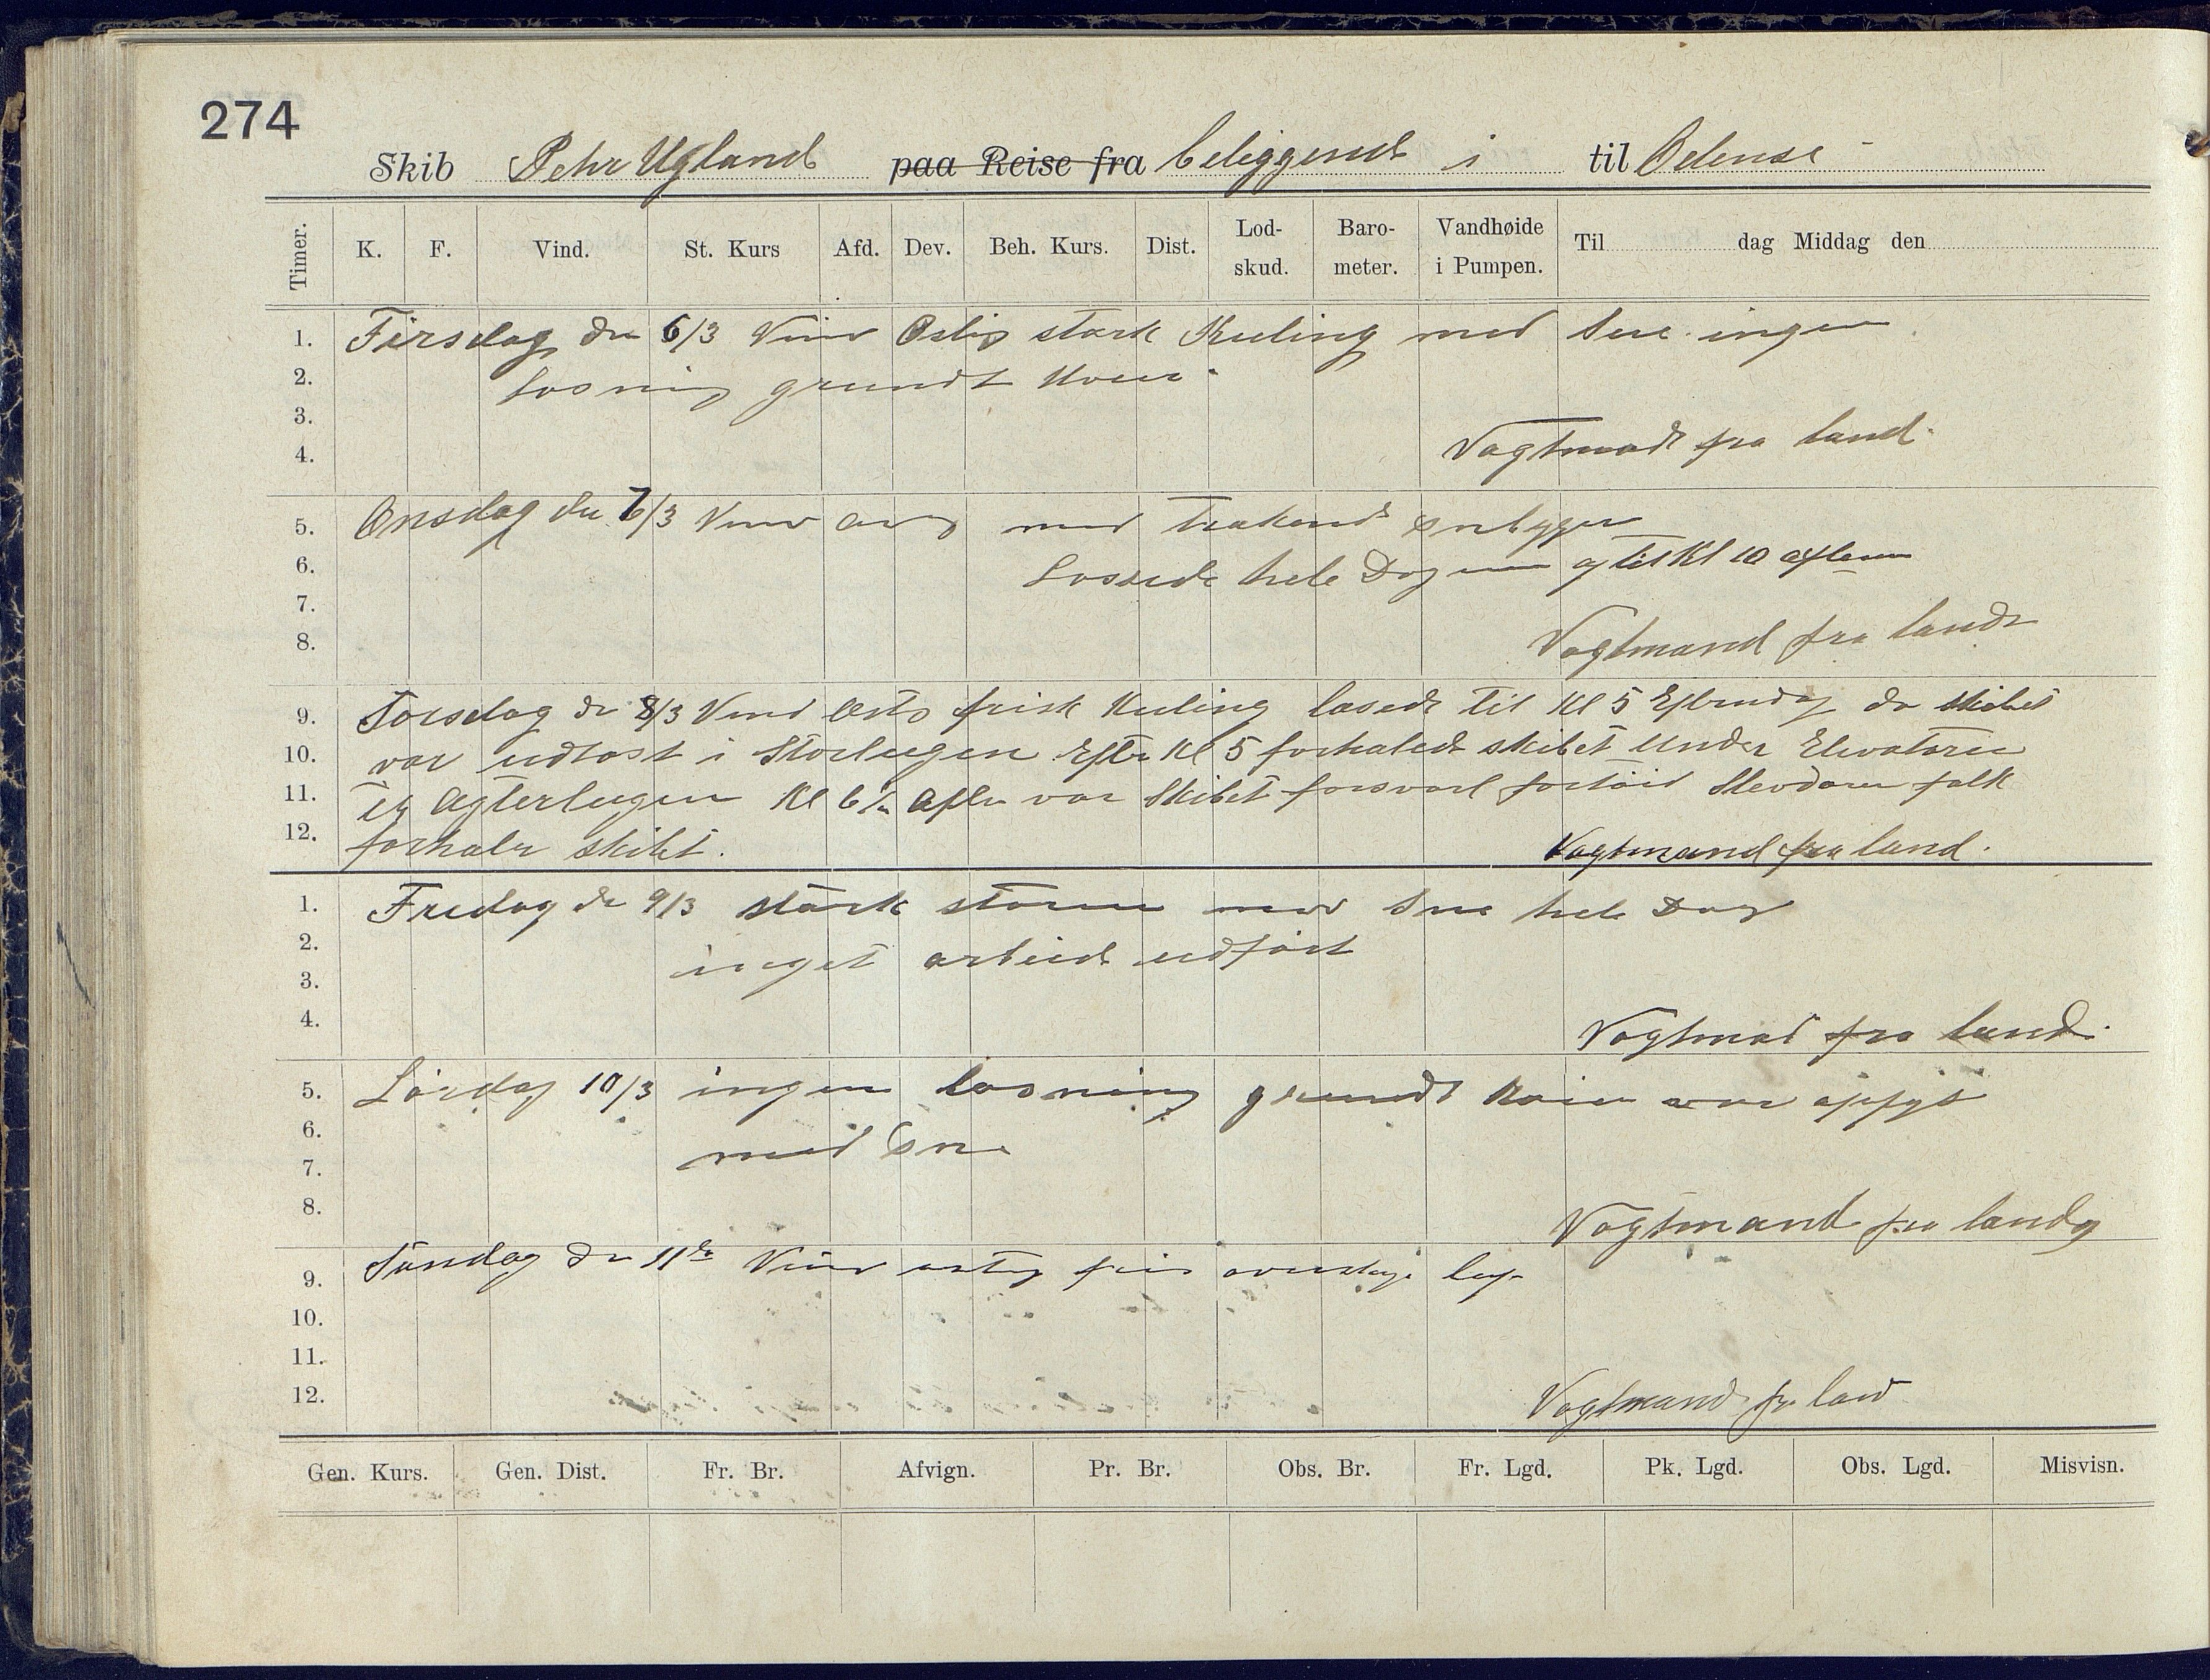 274
Skib Pehr Ugland paa Reise fra beliggende i til Odense
Timer. K. F. Vind. St. Kurs Afd. Dev. Beh. Kurs. Dist. Lod-skud. Baro-meter. Vandhøide i Pumpen. Til dag Middag den
1. Tirsdag den 6/3 Vind Ostlig stærk Kuling med Sne ingen
2. losning grundt
3.
4. Vagtmand fra land.
5. Onsdag den 7/3 Vind med snebyger
6. Lossede hele Dagen og til Kl 10 aften
7.
8. Vagtmand fra land
9. Torsdag den 8/3 Vind Ostlig frisk Kuling lossede til Kl 5 Eftmdag da skibet
10. var udlosset i Storlugen Efter Kl 5 forhalede skibet under Elevatoren
11. til Agterlugen Kl 6 1/2 Aften var Skibet forsvarl fortøiet folk
12. forhaler skibet. Vagtmand fra land.
1. Fredag den 9/3 stærk storm med Sne hele Dag
2. inget arbeid udført
3.
4. Vagtmand fra land.
5. Lørdag 10/3 ingen losning grundt Kaien var opfyldt
6. med Sne
7.
8. Vagtmand fra land
9. Søndag den 11te Vind østlig
10.
11.
12. Vagtmand fra land
Gen. Kurs. Gen. Dist. Fr. Br. Afvign. Pr. Br. Obs. Br. Fr. Lgd. Pk. Lgd. Obs. Lgd. Misvisn.